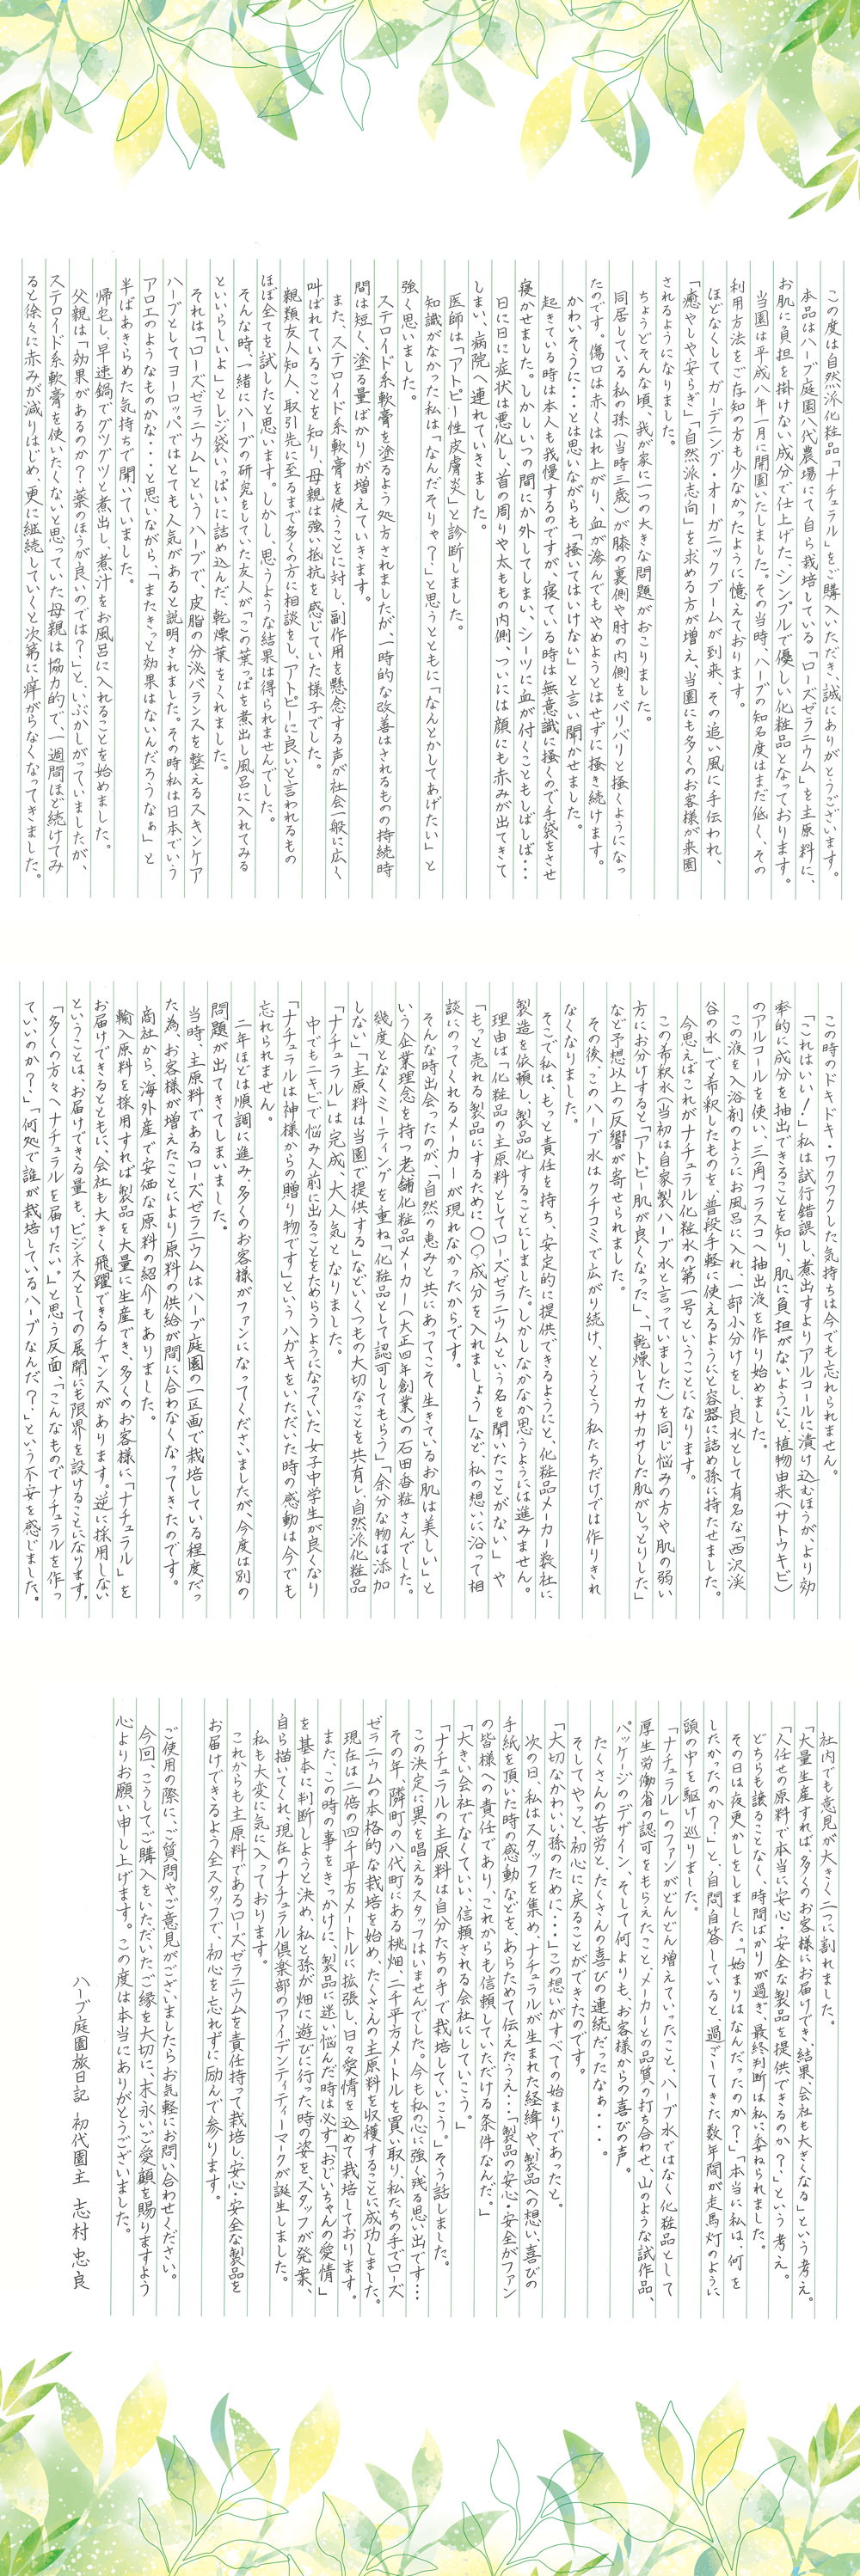 この度は自然派化粧品「ナチュラル」をご購入いただき、誠にありがとうございます。
本品はハーブ庭園八代農場にて、自ら栽培している「ローズゼラニウム」を主原料に、
お肌に負担を掛けない成分で仕上げた、シンプルで優しい化粧品となっております。
当園は平成八年一月に開園いたしました。その当時、ハーブの知名度はまだ低く、その
利用方法をご存知の方も少なかったように憶えております。
ほどなくしてガーデニング・オーガニックブームが到来、その追い風に手伝われ、
「癒やしや安らぎ」「自然派志向」を求める方が増え、当園にも多くのお客様が来園
されるようになりました。
ちょうどそんな頃、我が家に一つの大きな問題がおこりました。
同居している私の孫（当時三歳）が膝の裏側や肘の内側をバリバリと掻くようになっ
たのです。傷口は赤くはれ上がり、血が滲んでもやめようとはせずに掻き続けます。
かわいそうに・・・とは思いながらも「掻いてはいけない」と言い聞かせました。
起きている時は本人も我慢するのですが、寝ている時は無意識に掻くので手袋をさせ
寝かせました。しかしいつの間にか外してしまい、シーツに血が付くこともしばしば・・・
日に日に症状は悪化し、首の周りや太ももの内側、ついには顔にも赤みが出てきて
しまい、病院へ連れていきました。
医師は「アトピー性皮膚炎」と診断しました。
知識がなかった私は「なんだそりゃ？」と思うとともに「なんとかしてあげたい」と
強く思いました。
ステロイド系軟膏を塗るよう処方されましたが、一時的な改善はされるものの持続時
間は短く、塗る量ばかりが増えていきます。
また、ステロイド系軟膏を使うことに対し、副作用を懸念する声が社会一般に広く
叫ばれていることを知り、母親は強い抵抗を感じていた様子でした。
親類友人知人、取引先に至るまで多くの方に相談をし、アトピーに良いと言われるもの
ほぼ全てを試したと思います。しかし、思うような結果は得られませんでした。
そんな時、一緒にハーブの研究をしていた友人が「この葉っぱを煮出し風呂に入れてみる
といいらしいよ」とレジ袋いっぱいに詰め込んだ、乾燥葉をくれました。
それは「ローズゼラニウム」というハーブで、皮脂の分泌バランスを整えるスキンケア
ハーブとしてヨーロッパではとても人気があると説明されました。その時私は日本でいう
アロエのようなものかな・・・と思いながら、「またきっと効果はないんだろうなぁ」と
半ばあきらめた気持ちで聞いていました。
帰宅し、早速鍋でグツグツと煮出し、煮汁をお風呂に入れることを始めました。
父親は「効果があるのか？薬のほうが良いのでは？」と、いぶかしがっていましたが、
ステロイド系軟膏を使いたくないと思っていた母親は協力的で、一週間ほど続けてみ
ると徐々に赤みが減りはじめ、更に継続していくと次第に痒がらなくなってきました。
この時のドキドキ・ワクワクした気持ちは今でも忘れられません。
「これはいい！」私は試行錯誤し、煮出すよりアルコールに漬け込むほうが、より効
率的に成分を抽出できることを知り、肌に負担がないようにと、植物由来（サトウキビ）
のアルコールを使い、三角フラスコへ抽出液を作り始めました。
この液を入浴剤のようにお風呂に入れ、一部小分けをし、良水として有名な「西沢渓
谷の水」で希釈したものを、普段手軽に使えるようにと容器に詰め孫に持たせました。
今思えばこれがナチュラル化粧水の第一号ということになります。
この希釈水（当初は自家製ハーブ水と言っていました）を同じ悩みの方や肌の弱い
方にお分けすると「アトピー肌が良くなった」「乾燥してカサカサした肌がしっとりした」
など予想以上の反響が寄せられました。
その後、このハーブ水はクチコミで広がり続け、とうとう私たちだけでは作りきれ
なくなりました。
そこで私は、もっと責任を持ち、安定的に提供できるようにと、化粧品メーカー数社に
製造を依頼し、製品化することにしました。しかしなかなか思うようには進みません。
理由は「化粧品の主原料としてローズゼラニウムという名を聞いたことがない」や
「もっと売れる製品にするために〇〇成分を入れましょう」など、私の想いに沿って相
談にのってくれるメーカーが現れなかったからです。
そんな時出会ったのが、「自然の恵みと共にあってこそ、生きているお肌は美しい」と
いう企業理念を持つ老舗化粧品メーカー（大正四年創業）の石田香粧さんでした。
幾度となくミーティングを重ね「化粧品として認可してもらう」「余分な物は添加
しない」「主原料は当園で提供する」などいくつもの大切なことを共有し、自然派化粧品
「ナチュラル」は完成、大人気となりました。
中でもニキビで悩み人前に出ることをためらうようになっていた女子中学生が良くなり
「ナチュラルは神様からの贈り物です」という ハガキをいただいた時の感動は今でも
忘れられません。
二年ほどは順調に進み、多くのお客様がファンになってくださいましたが、今度は別の
問題が出てきてしまいました。
当時、主原料であるローズゼラニウムはハーブ庭園の一区画で栽培している程度だっ
た為、お客様が増えたことにより原料の供給が間に合わなくなってきたのです。
商社から、海外産で安価な原料の紹介もありました。
輸入原料を採用すれば製品を大量に生産でき、多くのお客様に「ナチュラル」を
お届けできるとともに、会社も大きく飛躍できるチャンスがあります。逆に採用しない
ということは、お届けできる量も、ビジネスとしての展開にも限界を設けることになります。
「多くの方々へナチュラルを届けたい。」と思う反面、「こんなものでナチュラルを作っ
ていいのか？」「何処で誰が栽培しているハーブなんだ？」という不安を感じました。
社内でも意見が大きく二つに割れました。
「大量生産すれば、多くのお客様にお届けでき、結果、会社も大きくなる」という考え。
「人任せの原料で本当に安心・安全な製品を提供できるのか？」という考え。
どちらも譲ることなく、時間ばかりが過ぎ、最終判断は私に委ねられました。
その日は夜更かしをしました。「始まりはなんだったのか？」「本当に私は、何を
したかったのか？」と、自問自答していると、過ごしてきた数年間が走馬灯のように
頭の中を駆け巡りました。
「ナチュラル」のファンがどんどん増えていったこと、ハーブ水ではなく化粧品として
厚生労働省の認可をもらえたこと、メーカーとの品質の打ち合わせ、山のような試作品、
パッケージのデザイン、そして何よりも、お客様からの喜びの声。
たくさんの苦労と、たくさんの喜びの連続だったなぁ・・・。
そしてやっと、初心に戻ることができたのです。
「大切なかわいい孫のために・・・」この想いがすべての始まりであったと。
次の日、私はスタッフを集め、ナチュラルが生まれた経緯や、製品への想い、喜びの
手紙を頂いた時の感動などを、あらためて伝えたうえ・・・「製品の安心・安全がファン
の皆様への責任であり、これからも信頼していただける条件なんだ。」
「大きい会社でなくていい、信頼される会社にしていこう。」
「ナチュラルの主原料は自分たちの手で栽培していこう。」そう話しました。
この決定に異を唱えるスタッフはいませんでした。今も私の心に強く残る思い出です・・・
その年、隣町の八代町にある桃畑、二千平方メートルを買い取り、私たちの手でローズ
ゼラニウムの本格的な栽培を始め、たくさんの主原料を収穫することに成功しました。
現在は二倍の四千平方メートルに拡張し、日々愛情を込めて栽培しております。
また、この時の事をきっかけに、製品に迷い悩んだ時は必ず「おじいちゃんの愛情」
を基本に判断しようと決め、私と孫が畑に遊びに行った時の姿を、スタッフが発案、
自ら描いてくれ、現在のナチュラル倶楽部のアイデンティティーマークが誕生しました。
私も大変に気に入っております。
これからも主原料であるローズゼラニウムを責任持って栽培し、安心・安全な製品を
お届けできるよう全スタッフで、初心を忘れずに励んで参ります。
ご使用の際に、ご質問やご意見がございましたらお気軽にお問い合わせください。
今回、こうしてご購入をいただいたご縁を大切に、末永いご愛顧を賜りますよう
心よりお願い申し上げます。この度は本当にありがとうございました。
ハーブ庭園旅日記 初代園主 志村忠良